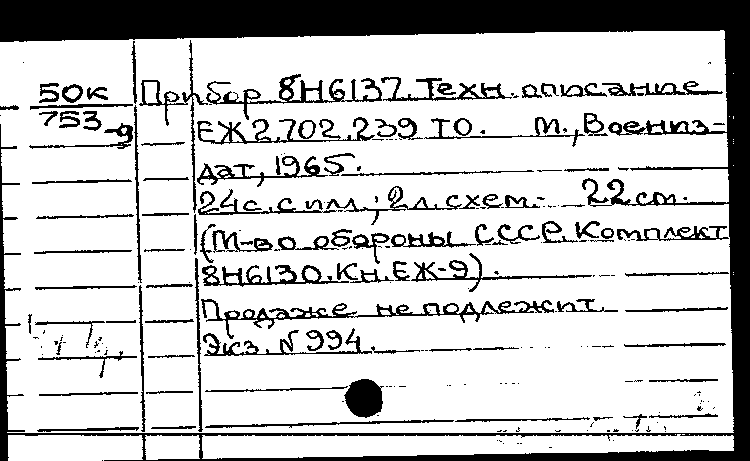 50к
753-9
Прибор 8Н6137. Техн. описание
ЕЖ2.702.239 ТО. М., Воениз=
дат, 1965.
24с. с илл.; 2л. схем.- 22 см.
(М-во обороны СССР. Комплект
8Н6130. Кн. ЕЖ-9).
Продаже не подлежит.
Экз. №994.